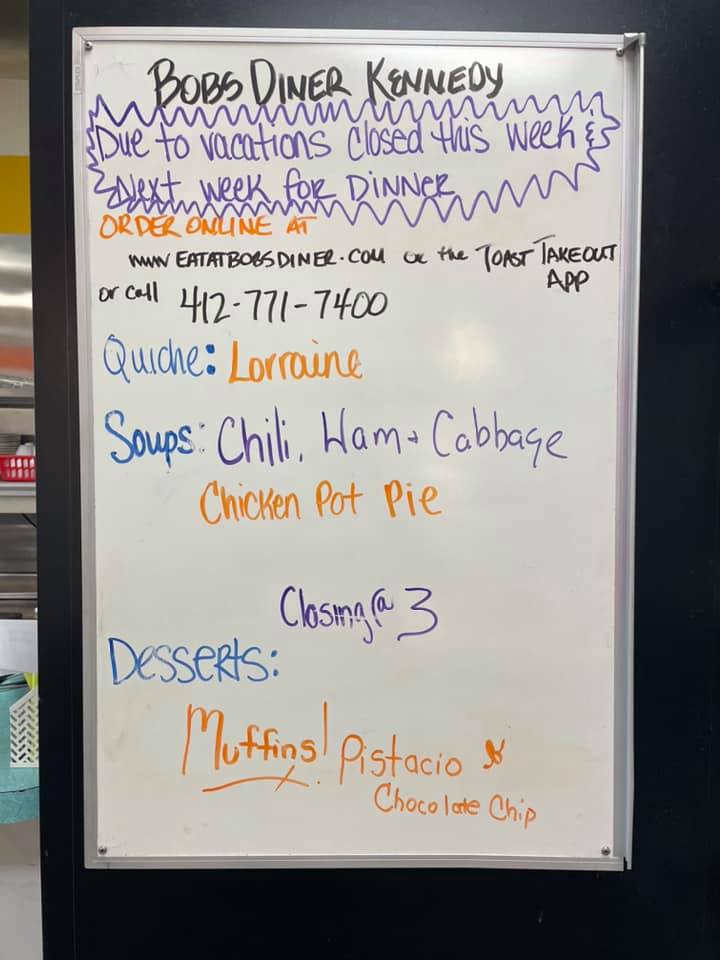 BOBS DINER KENNEDY
Due to vacations closed this week &
Next week for DINNER
ORDER ONLINE AT
www EATATBOBSDINER.COM or the TOAST TAKEOUT
APP
or call 412-771-7400
Quiche: Lorraine
Soups: Chili, Ham + Cabbage
Chicken Pot Pie
Closing @ 3
Desserts:
Muffins! Pistacio &
Chocolate Chip